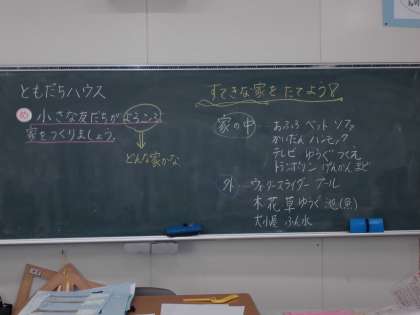 ともだちハウス
め 小さな友だちがよろこぶ
家をつくりましょう。
どんな家かな
すてきな家をたてよう!
家の中 … おふろ ベット ソファ
かいだん ハンモック
テレビ ゆうぐ つくえ
トランポリン げんかん まど
外 … ウォータースライダー プール
木 花 草 ゆうぐ 池(魚)
犬小屋 ふん水